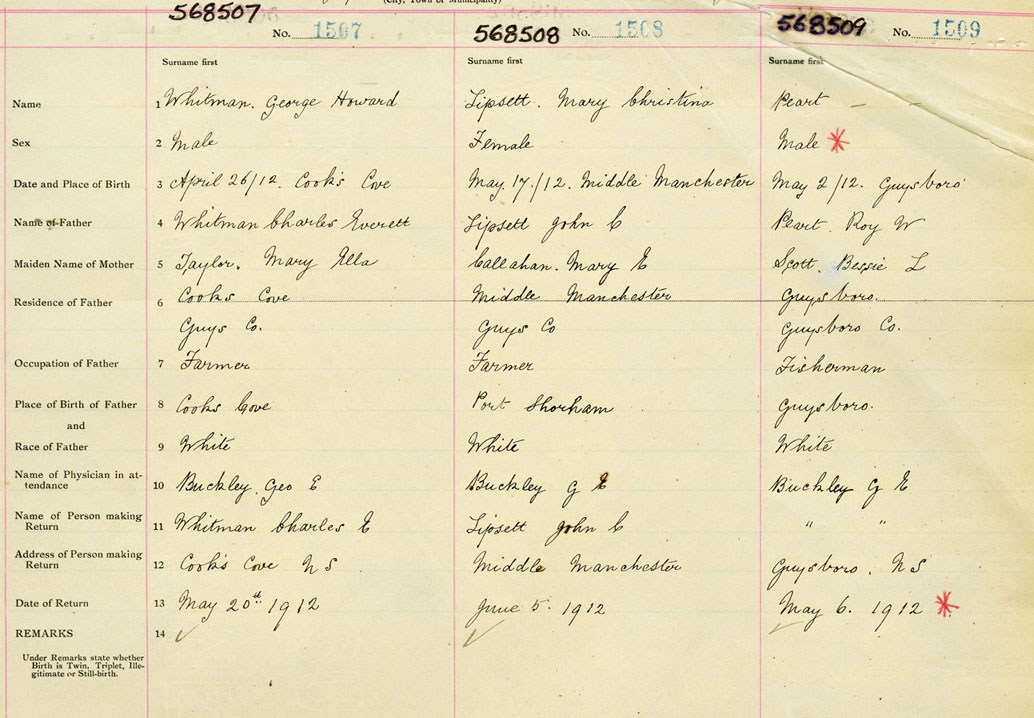 (City, Town or Municipality)
568507 No. 1507 568508 No. 1508 568509 No. 1509
Surname first Surname first Surname first
Name 1 Whitman. George Howard Lipsett. Mary Christina Peart — —
Sex 2 Male Female Male *
Date and Place of Birth 3 April 26/12. Cook's Cove May. 17./12. Middle Manchester May 2/12. Guysboro'
Name of Father 4 Whitman Charles Everett Lipsett John C Peart. Roy W
Maiden Name of Mother 5 Taylor. Mary Ella Callahan. Mary E Scott. Bessie L
Residence of Father 6 Cooks Cove Middle Manchester Guysboro.
Guys Co. Guys Co Guysboro Co.
Occupation of Father 7 Farmer Farmer Fisherman
Place of Birth of Father 8 Cooks Cove Port Shorham Guysboro.
and
Race of Father 9 White White White
Name of Physician in at-
tendance 10 Buckley. Geo E Buckley G E Buckley G E
Name of Person making
Return 11 Whitman Charles E Lipsett John C " "
Address of Person making
Return 12 Cook's Cove N S Middle Manchester Guysboro. N S
Date of Return 13 May 20th 1912 June 5. 1912 May 6. 1912 *
REMARKS 14 ✓ ✓ ✓
Under Remarks state whether
Birth is Twin, Triplet, Ille-
gitimate or Still-birth.